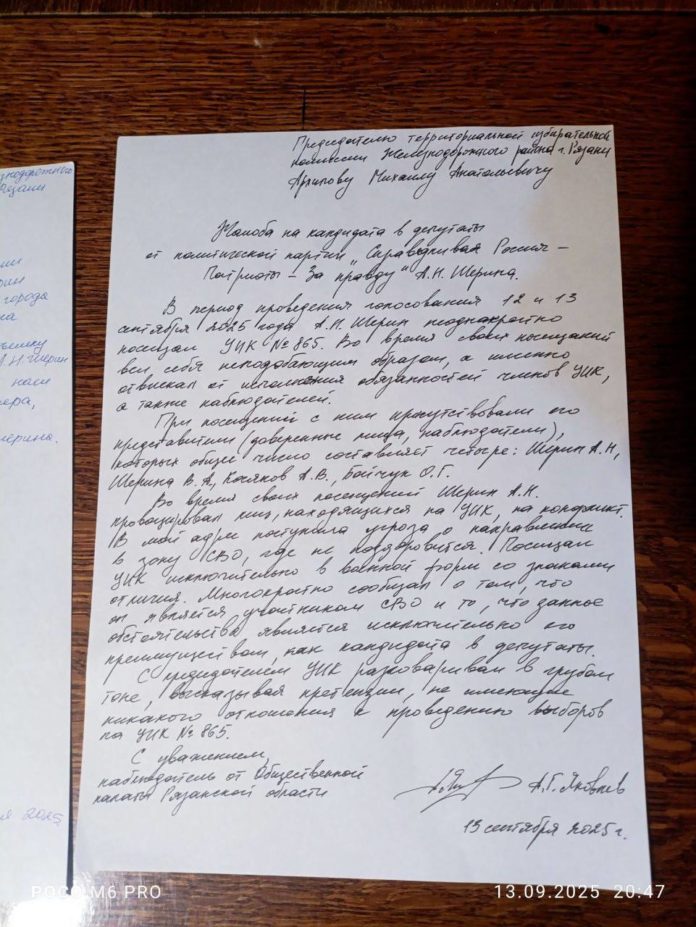 Председателю территориальной избирательной
комиссии Железнодорожного района г. Рязани
Архипову Михаилу Анатольевичу
Жалоба на кандидата в депутаты
от политической партии „Справедливая Россия –
Патриоты – За правду" А.Н. Шерина.
В период проведения голосования 12 и 13
сентября 2025 года А.Н. Шерин неоднократно
посещал УИК № 865. Во время своих посещений
вел себя неподобающим образом, а именно
отвлекал от исполнения обязанностей членов УИК,
а также наблюдателей.
При посещений с ним присутствовали его
представители (доверенные лица, наблюдатели),
которых общее число составляет четыре: Шерин А.Н,
Шерина В.А, Косяков А.В., Бойчук О.Г.
Во время своих посещений Шерин А.Н.
провоцировал лиц, находящихся на УИК, на конфликт.
В мой адрес поступила угроза о направлении
в зону СВО, где не поздоровится. Посещал
УИК исключительно в военной форм со знаками
отличия. Многократно сообщал о том, что
он является участником СВО и то, что данное
обстоятельства является исключительно его
преимуществом, как кандидата в депутаты.
С председателем УИК разговаривал в грубом
тоне, высказывая претензии, не имеющие
никакого отношения к проведению выборов
на УИК № 865.
С уважением,
наблюдатель от Общественной
палаты Рязанской области
А.Г. Яковлев
13 сентября 2025 г.
города
А.Н. Шерин
Шерина.
2025
POCO M6 PRO
13.09.2025 20:47